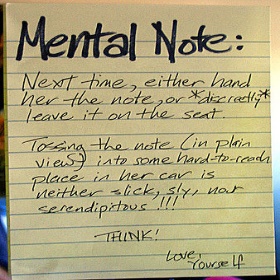 Mental Note:
Next time, either hand
her the note, or *discreetly*
leave it on the seat.
Tossing the note (in plain
view) into some hard-to-reach
place in her car is
neither slick, sly, nor
serendipitous!!!
THINK!
Love,
Yourself